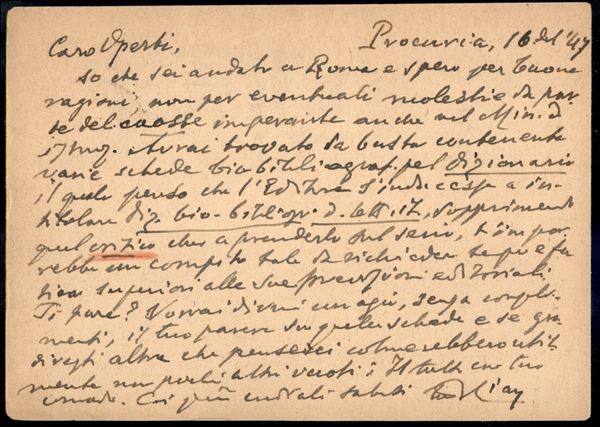 Procuria, 16 del '47
Caro Operti,
so che sei andato a Roma e spero per buone
ragioni, non per eventuali molestie da par-
te del caosse imperante anche nel Min. d
Istruz. Avrai trovato la busta contenente
varie schede bio-bibliograf. pel dizionario
il quale penso che l'Editore s'inducesse a in-
titolare diz. bio-bibliogr. d. lett. it., sopprimendo
quel critico che, a prenderlo sul serio, t'impor-
rebbe un compito tale da richieder tempo e fa-
tica superiori alle sue previsioni editoriali.
Ti pare? Vorrai dirmi senza compli-
menti, il tuo parere su quelle schede e se gra-
diresti altre che penserei colmerebbero util-
mente non pochi altri vuoti; Il tutto con tuo
comodo. Coi più cordiali saluti